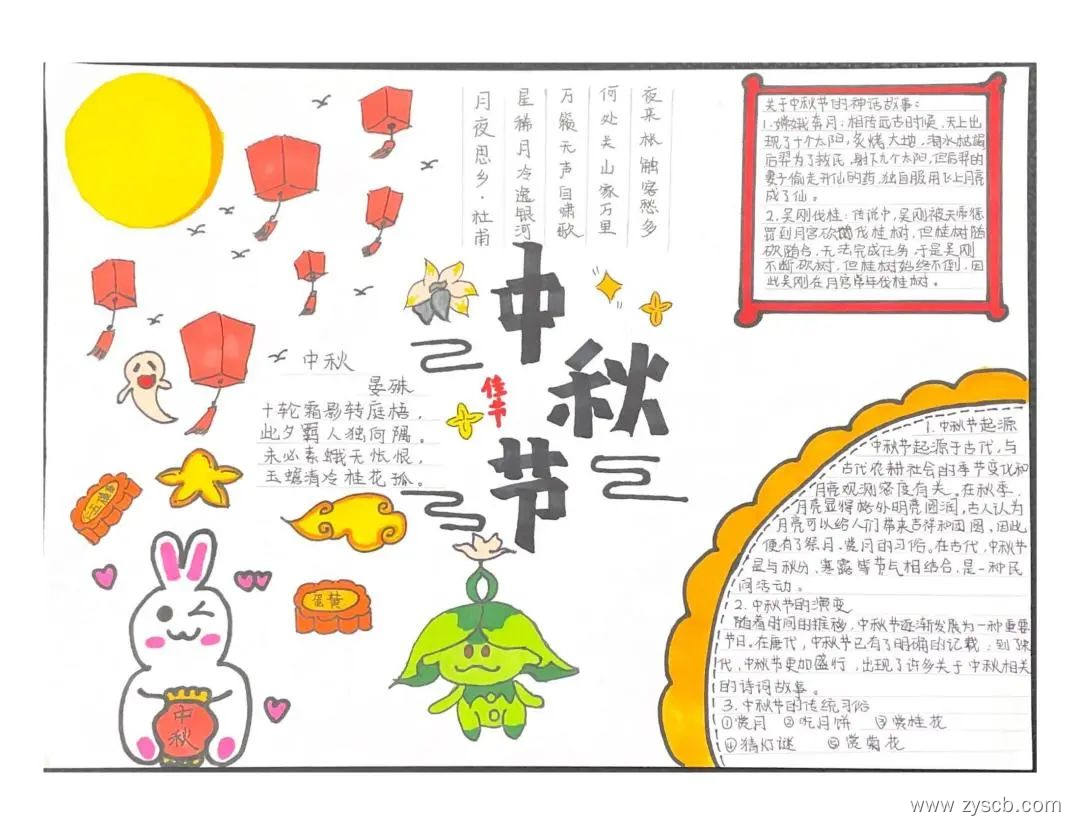 月夜思乡·杜甫
星稀月冷逸银河
万籁无声自啸歌
何处关山家万里
夜来枨触客愁多
中秋节
佳节
中秋
晏殊
十轮霜影转庭梧，
此夕羁人独向隅。
未必素娥无怅恨，
玉蟾清冷桂花孤。
蛋黄
中秋
关于中秋节的神话故事：
1.嫦娥奔月：相传远古时候，天上出
现了十个太阳，炙烤大地，海水枯竭
后羿为了救民，射下九个太阳，但后羿的
妻子偷走升仙的药，独自服用飞上月亮
成了仙。
2.吴刚伐桂：传说中，吴刚被天帝惩
罚到月宫砍伐桂树，但桂树随
砍随合，无法完成任务于是吴刚
不断砍树，但桂树始终不倒，因
此吴刚在月宫常年伐桂树。
1.中秋节起源
中秋节起源于古代，与
古代农耕社会的季节变化和
月亮观测密度有关。在秋季，
月亮显得格外明亮圆润，古人认为
月亮可以给人们带来吉祥和团圆，因此
便有了祭月、赏月的习俗。在古代，中秋节
是与秋分、寒露等节气相结合，是一种民
间活动。
2.中秋节的演变
随着时间的推移，中秋节逐渐发展为一种重要
节日。在唐代，中秋节已有了明确的记载；到了宋
代，中秋节更加盛行，出现了许多关于中秋相关
的诗词故事。
3.中秋节的传统习俗
①赏月 ②吃月饼 ③赏桂花
④猜灯谜 ⑤赏菊花
www.zyscb.com